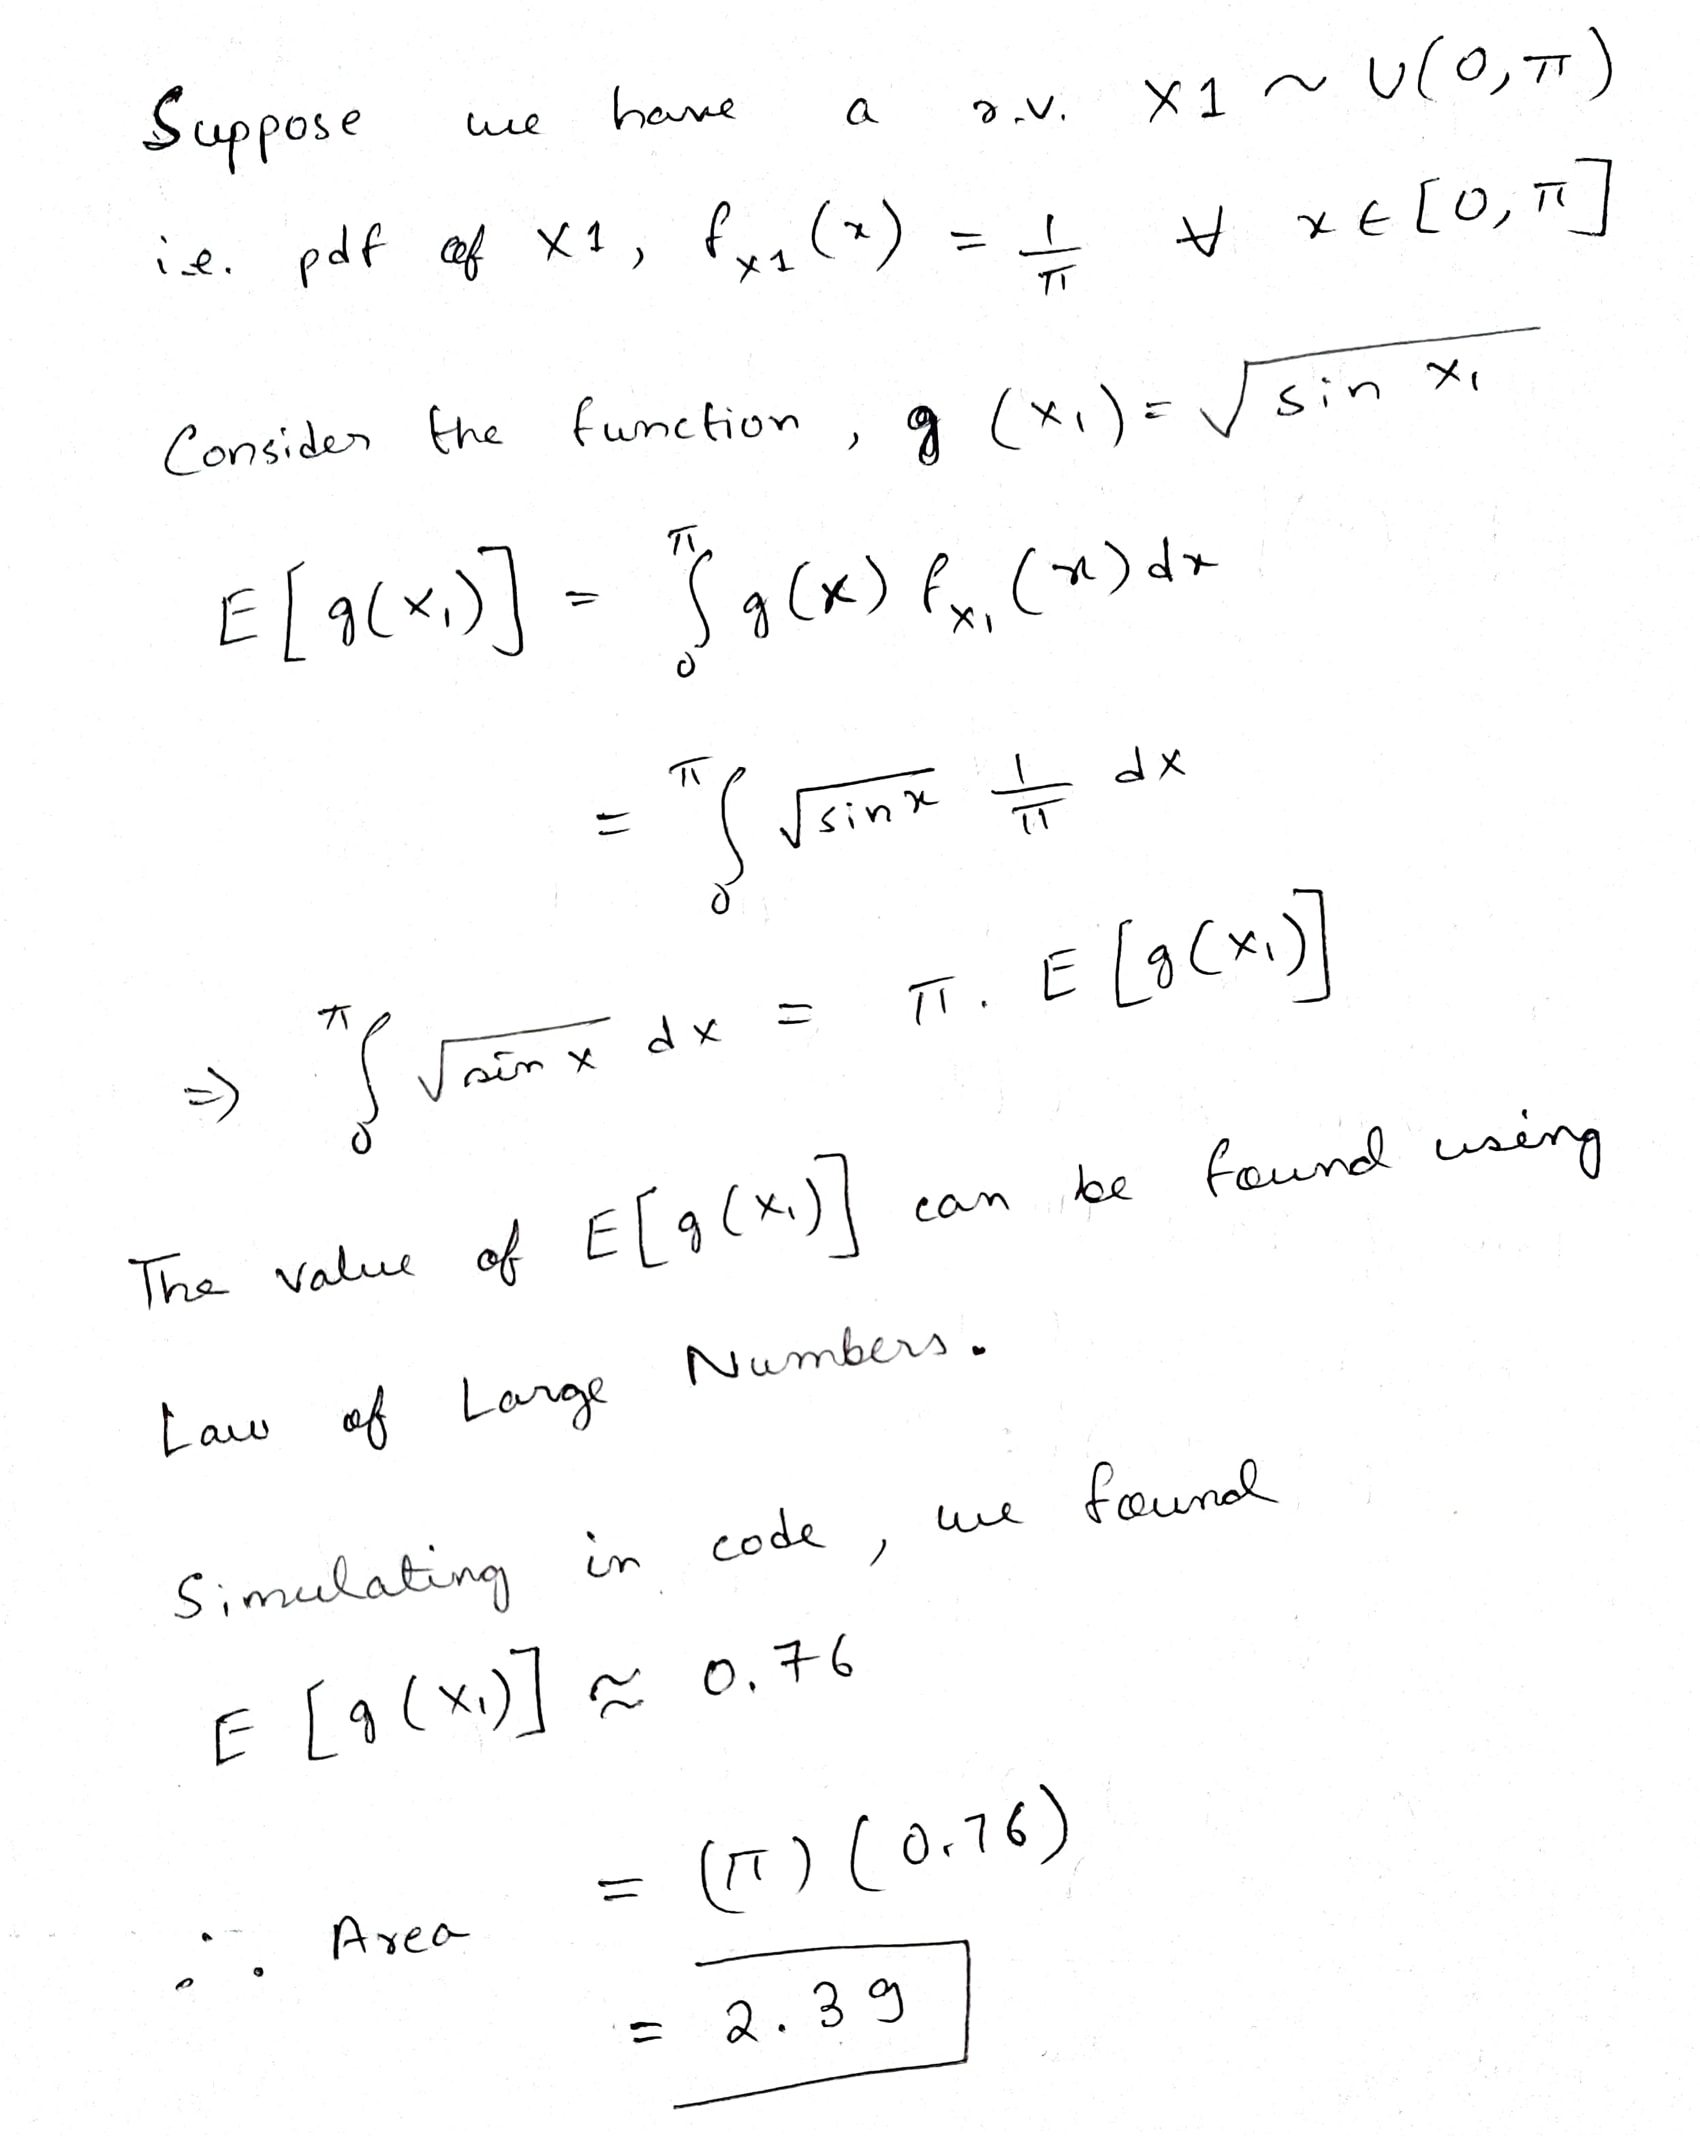 Suppose we have a r.v. X1 ~ U(0, π)
i.e. pdf of X1, f_{X1}(x) = 1/π ∀ x ∈ [0, π]
Consider the function, g(X₁) = √(sin X₁)
E[g(X₁)] = ∫₀^π g(x) f_{X₁}(x) dx
= ∫₀^π √(sin x) 1/π dx
⇒ ∫₀^π √(sin x) dx = π. E[g(X₁)]
The value of E[g(X₁)] can be found using
Law of Large Numbers.
Simulating in code, we found
E[g(X₁)] ≈ 0.76
∴ Area = (π)(0.76)
= 2.39